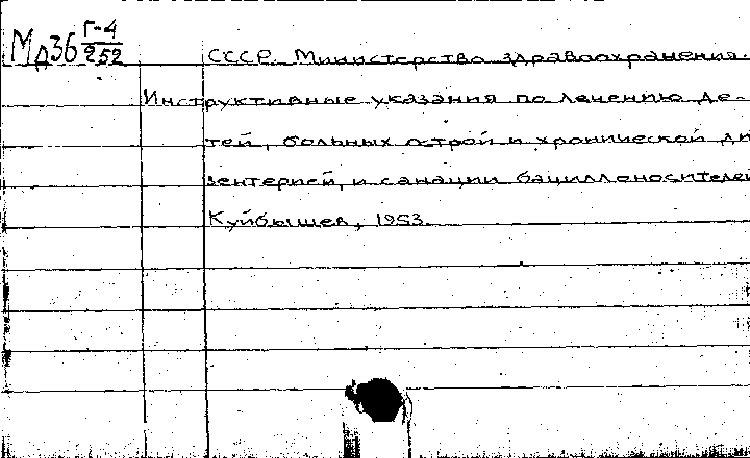 Мд36 Г-4/252
СССР. Министерство здравоохранения.
Инструктивные указания по лечению де-
тей, больных острой и хронической ди
зентерией, и санации бациллоносителей
Куйбышев, 1953.